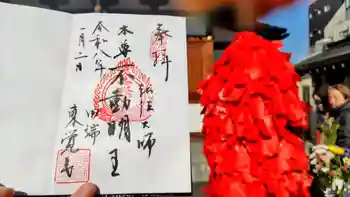 奉拝
弘法大師
本尊不動明王
田端
東覚寺
令和八年
一月二日